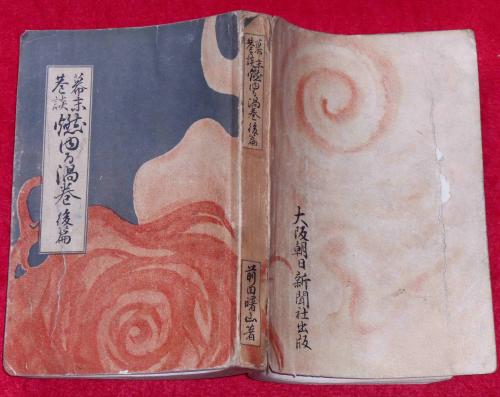 幕末
巷談
燃ゆる渦巻 後篇
幕末
巷談
燃ゆる渦巻 後篇
前田曙山著
大阪朝日新聞社出版